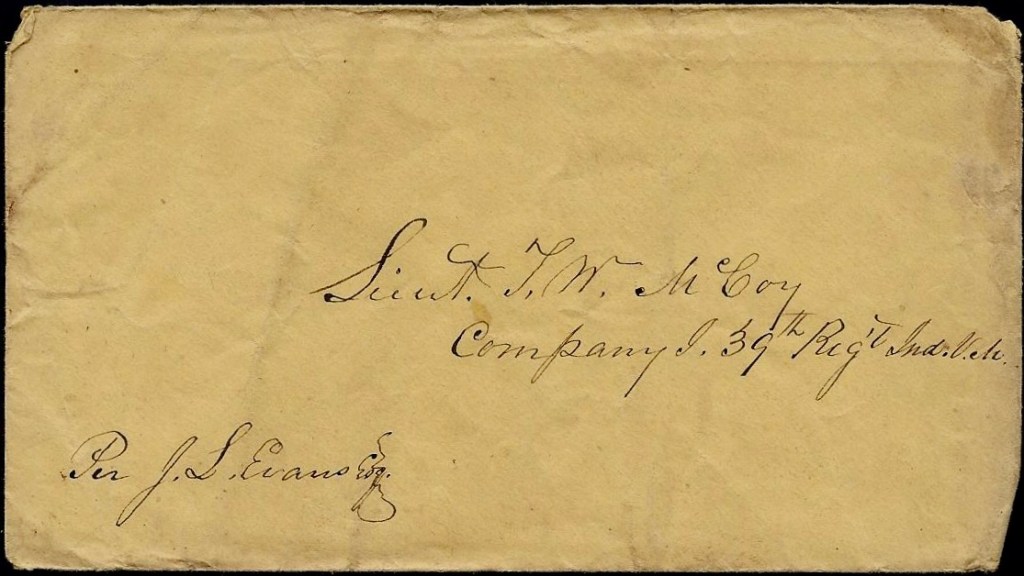 Lieut. T. W. McCoy
Company I. 39th Reg't Ind. V. M.
Per J. S. Evans Esq.